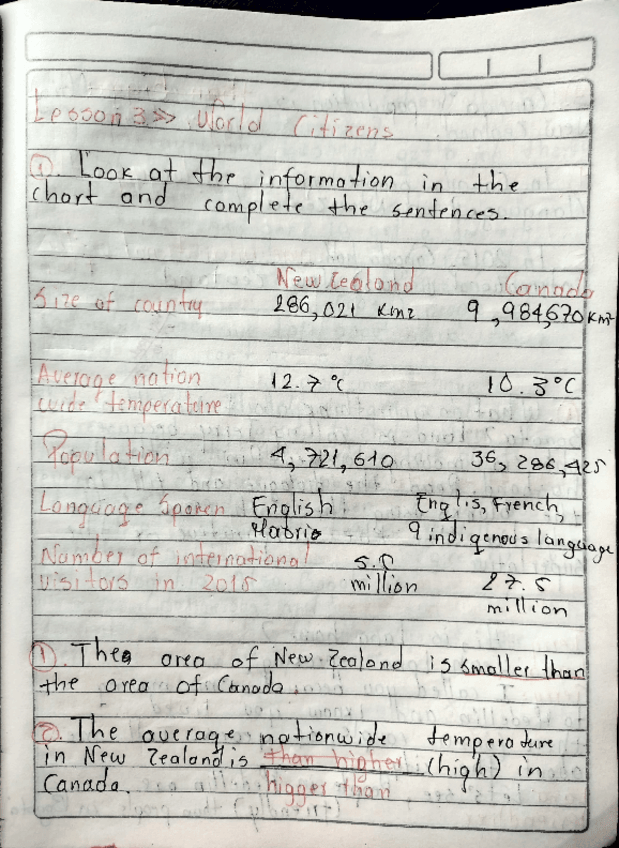 Lesson 3 >> World Citizens
①. Look at the information in the
chart and complete the sentences.
New Zealand Canada
Size of country 286,021 Km2 9,984,670 Km²
Average nation 12.7 °C 10.3°C
wide temperature
Population 4,721,610 36,286,425
Language Spoken English Englis, French,
9 indigenous language
Number of international 5.5
visitors in 2015 million 27.5
million
①. The area of New Zealand is smaller than
the area of Canada.
②. The average nationwide temperature
in New Zealand is than higher (high) in
Canada. higger than